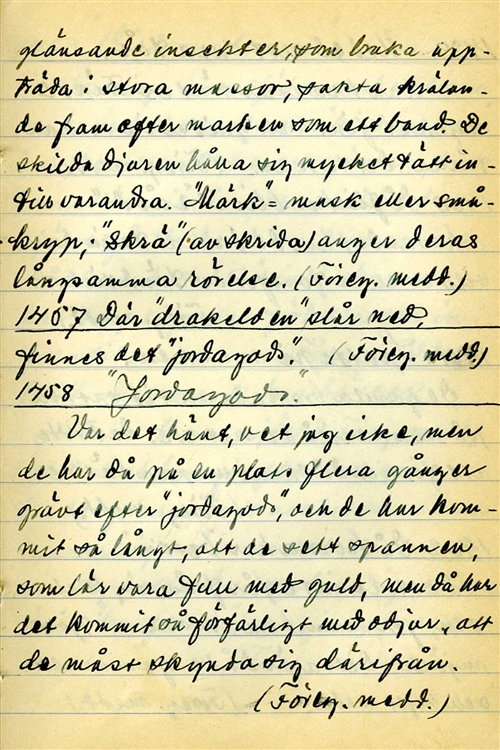 glänsande insekter, som bruka upp-
träda i stora massor, sakta krälan-
de fram efter marken som ett band. De
skilda djuren hålla sig mycket tätt in-
till varandra. "Märk" = mask eller små-
kryp; "skrä" (av skrida) anger deras
långsamma rörelse. (Föreg. medd.)
1457 Där "drakelden" slår ned,
finnes det "jordagods". (Föreg. medd.)
1458 "Jordagods."
Var det hänt, vet jag icke, men
de har då på en plats flera gånger
grävt efter "jordagods", och de har kom-
mit så långt, att de sett spannen,
som lär vara full med guld, men då har
det kommit så förfärligt med odjur, att
de måst skynda sig därifrån.
(Föreg. medd.)